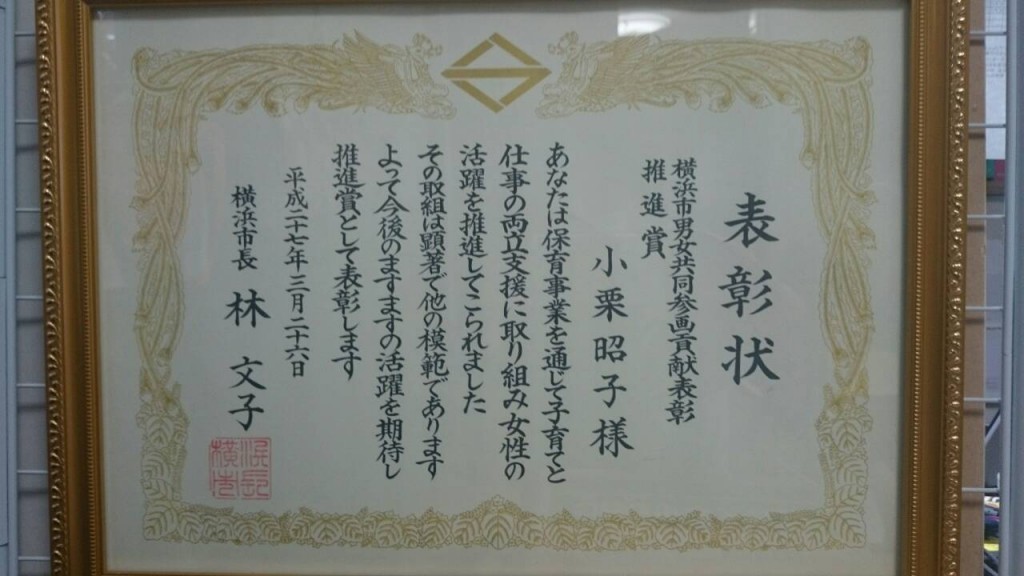 表彰状
横浜市男女共同参画貢献表彰
推進賞
小栗昭子様
あなたは保育事業を通じて子育てと
仕事の両立支援に取り組み女性の
活躍を推進してこられました
その取組は顕著で他の模範であります
よって今後のますますの活躍を期待し
推進賞として表彰します
平成二十七年三月二十六日
横浜市長 林 文子